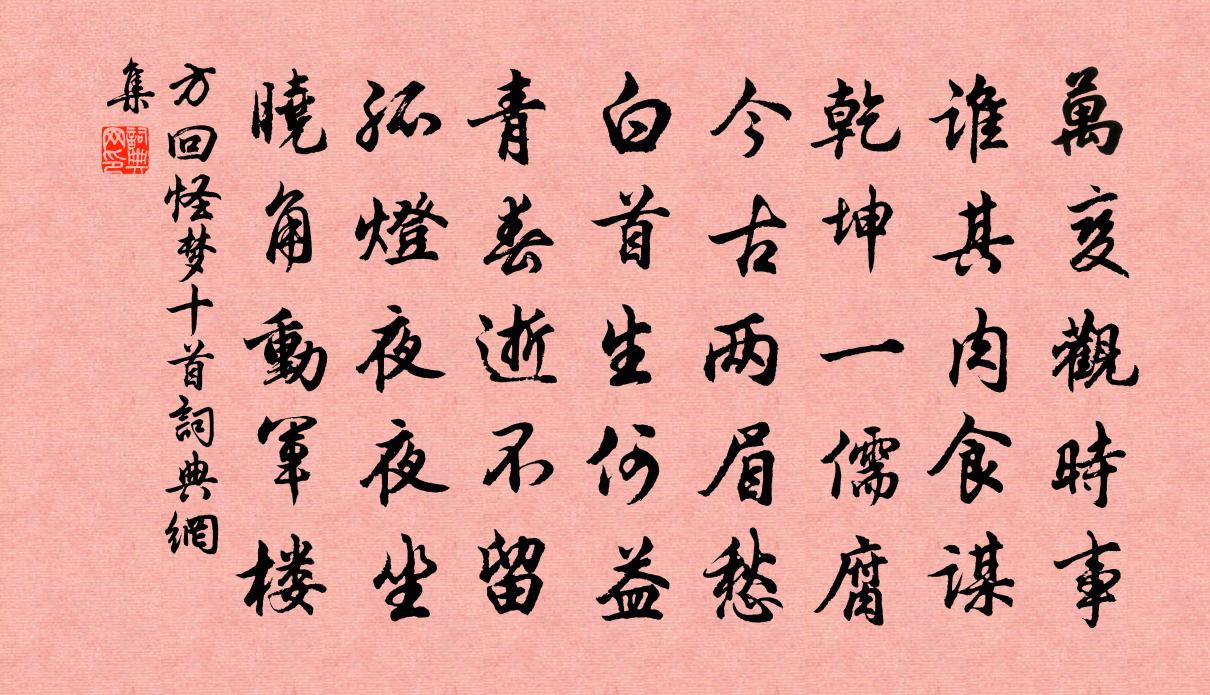 萬变觀時事
誰其肉食謀
乾坤一儒腐
今古两眉愁
白首生何益
青春逝不留
孤燈夜夜坐
曉角動軍楼
方回怪梦十首詞典網
集
詞典
网印